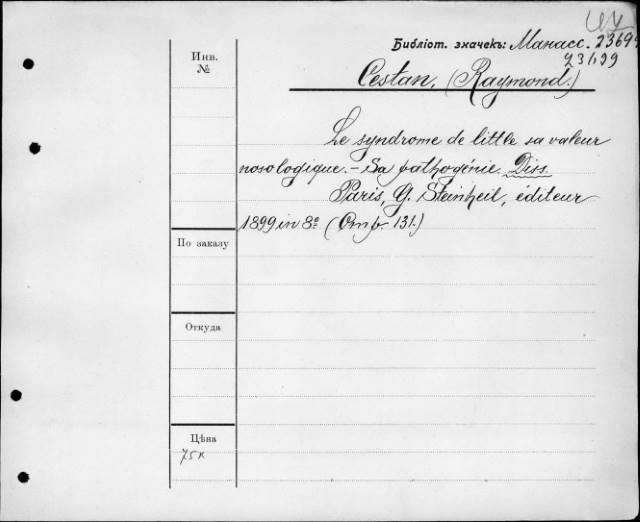 Библіот. значекъ: Манасс. 2369
23/199
Инв.
№
Cestan, (Raymond.)
Le syndrome de little sa valeur
nosologique. – Sa pathogénie. Diss.
Paris, G. Steinheil, éditeur
1899 in 8º (Стр. 131.)
По заказу
Откуда
Цѣна
75 к